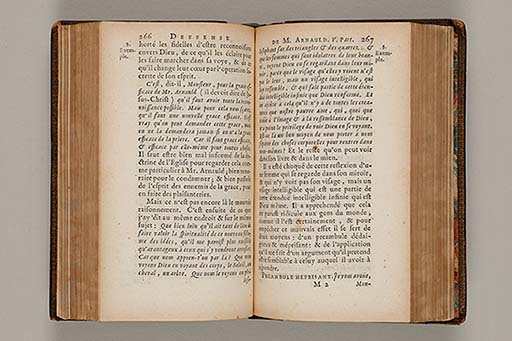 266 DEFFENSE
2. Exem-
ple.
horté les fidelles d'estre reconnoissans
envers Dieu, de ce qu'il les éclaire pour
les faire marcher dans sa voye, & de ce
qu'il change leur cœur par l'operation se-
crette de son esprit.
C'est, dit-il, Monsieur, pour la grace ef-
ficace de Mr. Arnauld (il devoit dire de Je-
sus-Christ) qu'il faut avoir toute la recon-
noissance possible. Mais pour cela vous sçavez,
qu'il faut une nouvelle grace efficace. Car
vray qu'on peut demander cette grace, mais
on ne la demandera jamais si on n'a la grace
efficace de la priere. Car il faut grace efficace
& efficace par elle-même pour toutes choses.
Il faut estre bien mal informé de la do-
ctrine de l'Eglise pour regarder cela com-
me particulier à Mr. Arnauld, bien teme-
raire pour le condamner; & bien possedé
de l'esprit des ennemis de la grace, pour
en faire des plaisanteries.
Mais ce n'est pas encore là le mauvais
raisonnement. C'est ensuite de ce que
j'ay dit au même endroit & sur le même
sujet: Que bien loin qu'il ait tant de lieu de
faire valoir la spiritualité de ce nouveau systé-
me des idées, qu'il me paroist plus nuisible
qu'avantageux à ceux qui y voudront
Car que nous appren-t'on par là? Que nous
voyons Dieu en voyant des corps, le Soleil, un
cheval, un arbre. Que nous le voyons en phi-
DE M. ARNAULD. V. Part. 267
2.
Exem-
ple.
losophant sur des triangles & des quarrez: &
que les femmes qui sont idolatres de leur beau-
té, voyent Dieu en se regardant dans leur mi-
roir, parce que le visage qu'elles y voient n'est
pas le leur, mais un visage intelligible, qui
luy ressemble, & qui fait partie de cette éten-
due intelligible infinie que Dieu renferme. Et
on ajoûte à cela qu'il n'y a de toutes les crea-
tures que nostre pauvre ame, qui, quoi que
creée à l'image & à la ressemblance de Dieu,
n'a point le privilege de voir Dieu en se voyant.
Est-ce là un bon moyen de nous porter à nous
separer des choses corporelles pour rentrer dans
nous-mêmes? Et le reste qu'on peut voir
dans son livre & dans le mien.
Il a esté choqué de cette reflexion d'u-
ne femme qui se regarde dans son miroir,
& qui n'y voit pas son visage, mais un
visage intelligible qui est une partie de
cette étendue intelligible infinie qui est
Dieu même. Il a apprehendé que cela
ne parust ridicule aux gens du monde,
comme il l'est certainement, & pour
empêcher ce mauvais effet il se sert de
deux moyens: d'un preambule dédai-
gneux & méprisant; & de l'application
qu'il me fait d'un argument qu'il pretend
estre semblable à celuy auquel il avoit à
répondre.
PREAMBULE MEPRISANT. Je pourrois,
M 2 Mon-